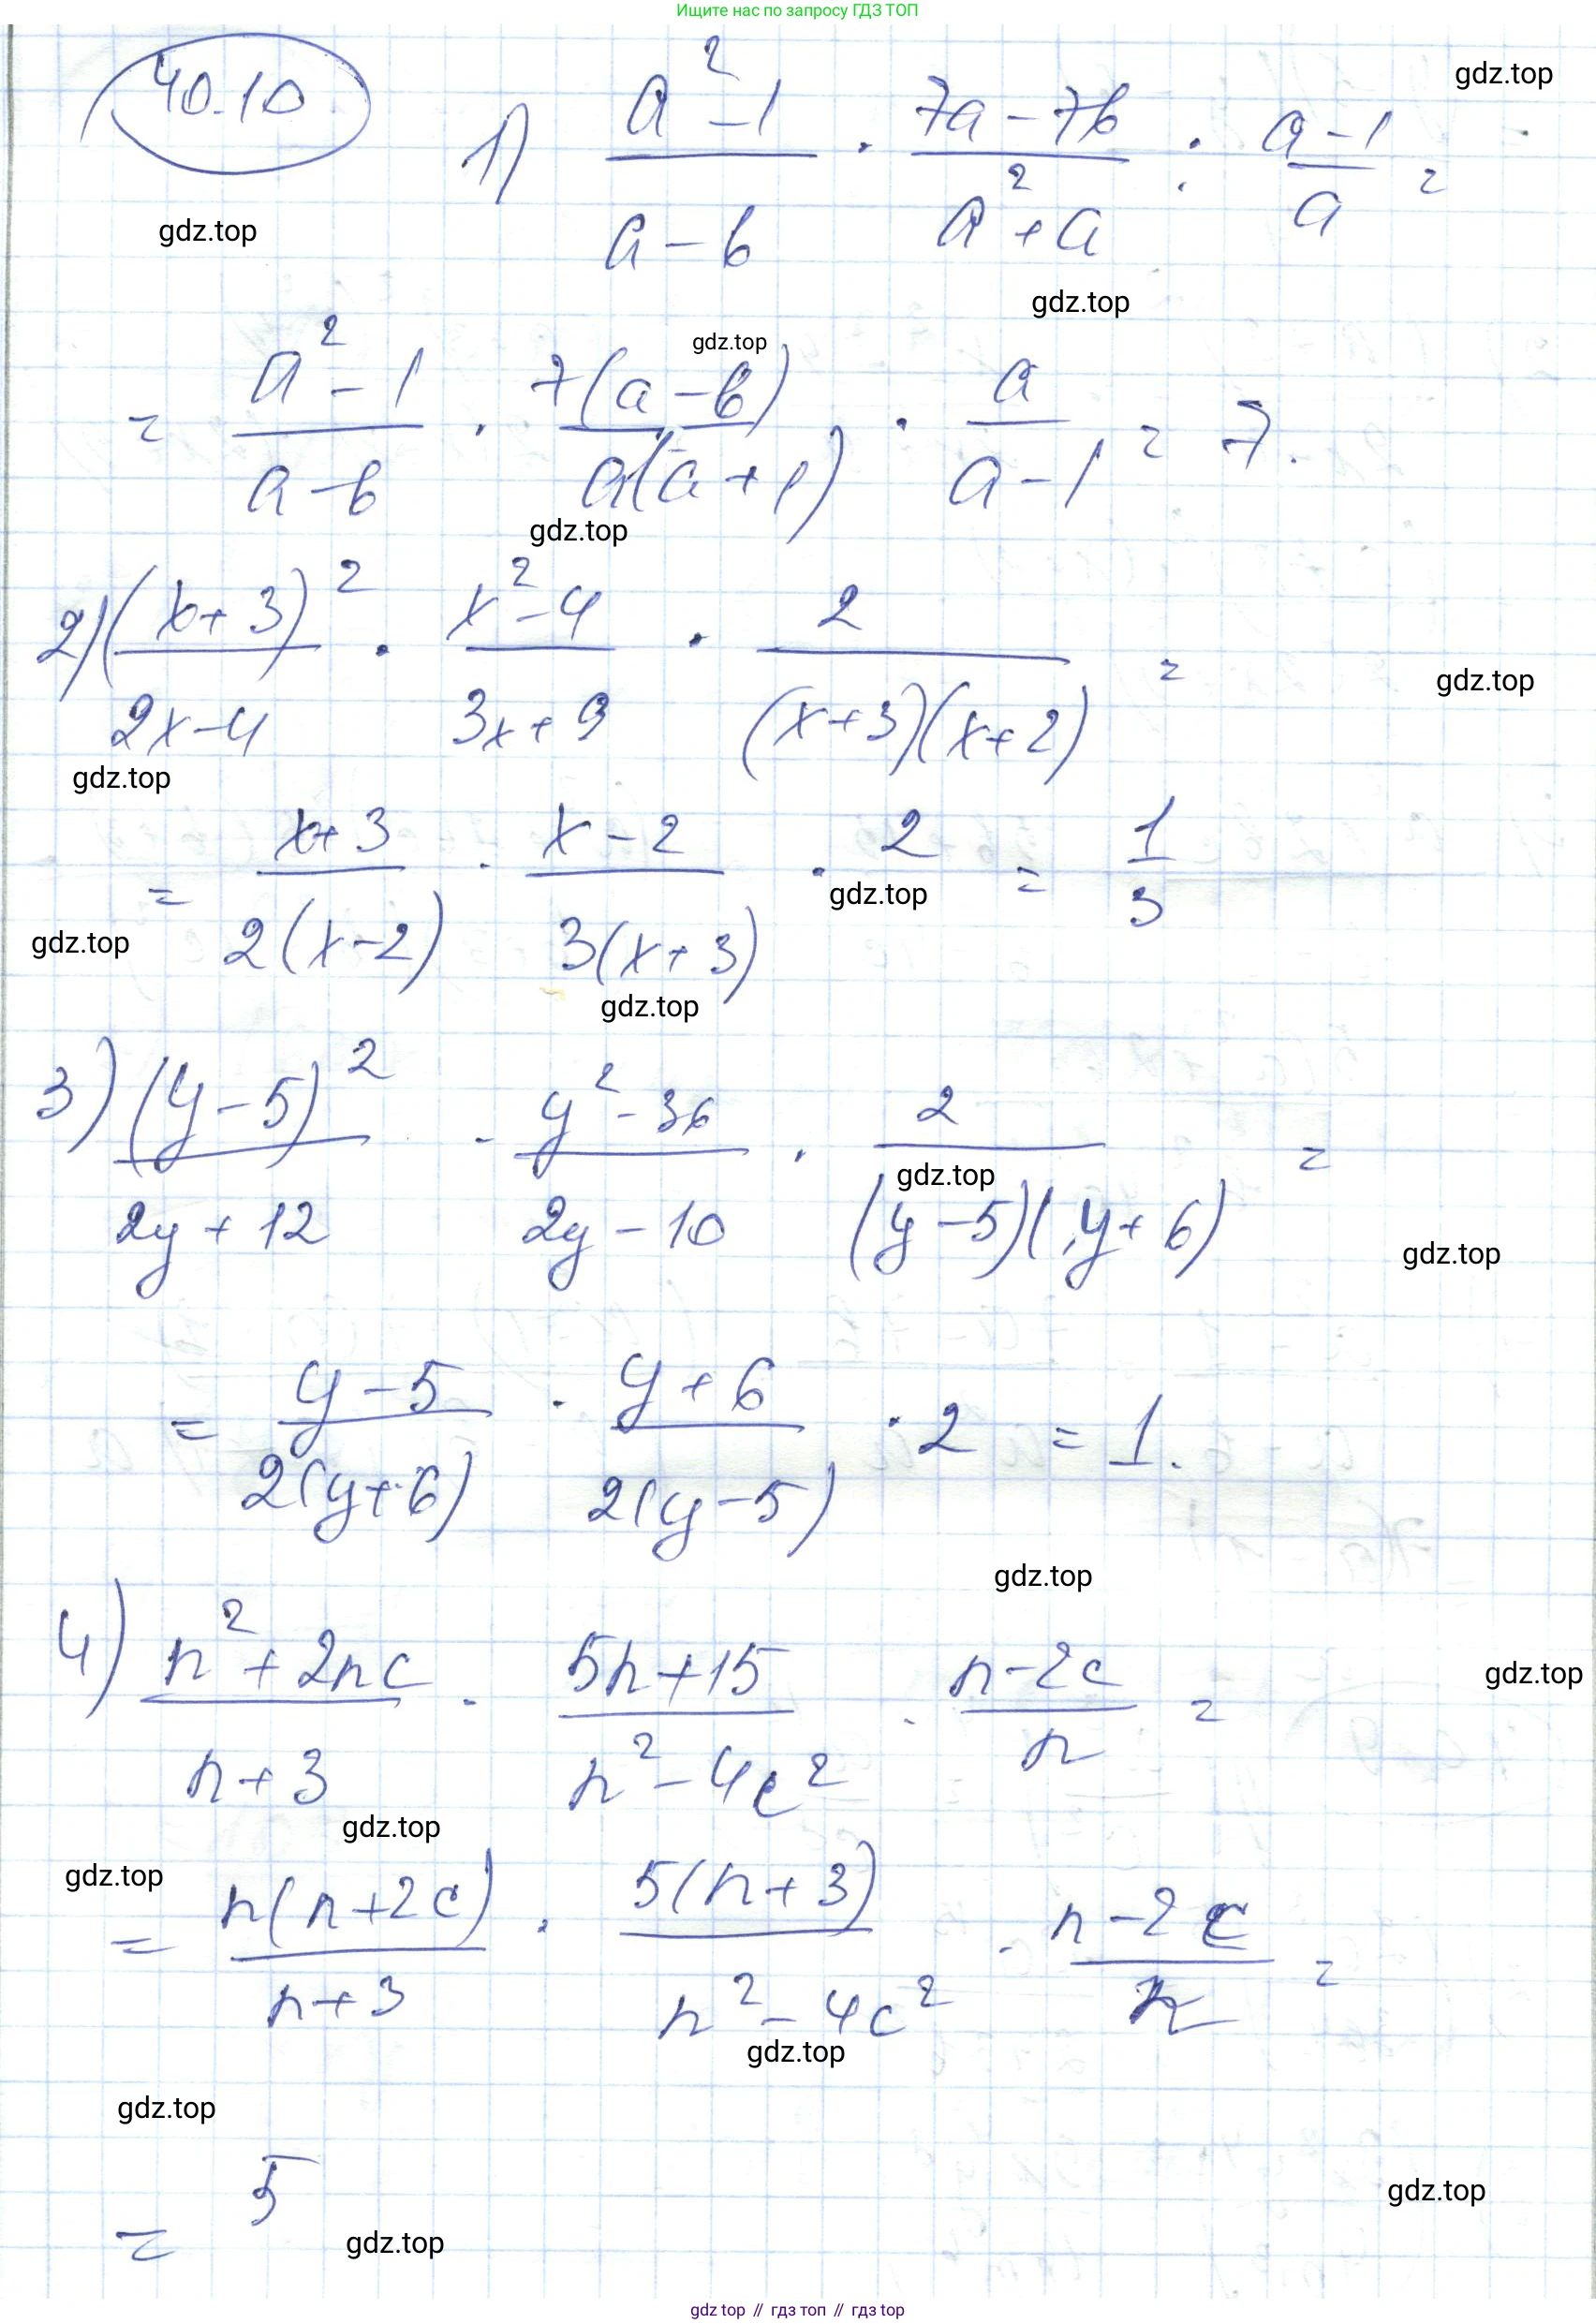 Ищите нас по запросу ГДЗ ТОП
gdz.top
40.10 1) (a² - 1)/(a - b) · (7a - 7b)/(a² + a) : (a - 1)/a =
gdz.top
gdz.top
gdz.top
= (a² - 1)/(a - b) · 7(a - b)/(a(a + 1)) · a/(a - 1) = 7.
gdz.top
2) (x + 3)²/(2x - 4) · (x² - 4)/(3x + 9) · 2/((x + 3)(x + 2)) =
gdz.top
gdz.top
= (x + 3)/(2(x - 2)) · (x - 2)/(3(x + 3)) · 2 = 1/3
gdz.top
gdz.top
gdz.top
3) (y - 5)²/(2y + 12) · (y² - 36)/(2y - 10) · 2/((y - 5)(y + 6)) =
gdz.top
gdz.top
= (y - 5)/(2(y + 6)) · (y + 6)/(2(y - 5)) · 2 = 1.
gdz.top
4) (n² + 2nc)/(n + 3) · (5n + 15)/(n² - 4c²) · (n - 2c)/n =
gdz.top
gdz.top
gdz.top
= n(n + 2c)/(n + 3) · 5(n + 3)/(n² - 4c²) · (n - 2c)/n =
gdz.top
gdz.top
= 5
gdz.top
gdz.top
gdz.top // гдз топ // гдз top